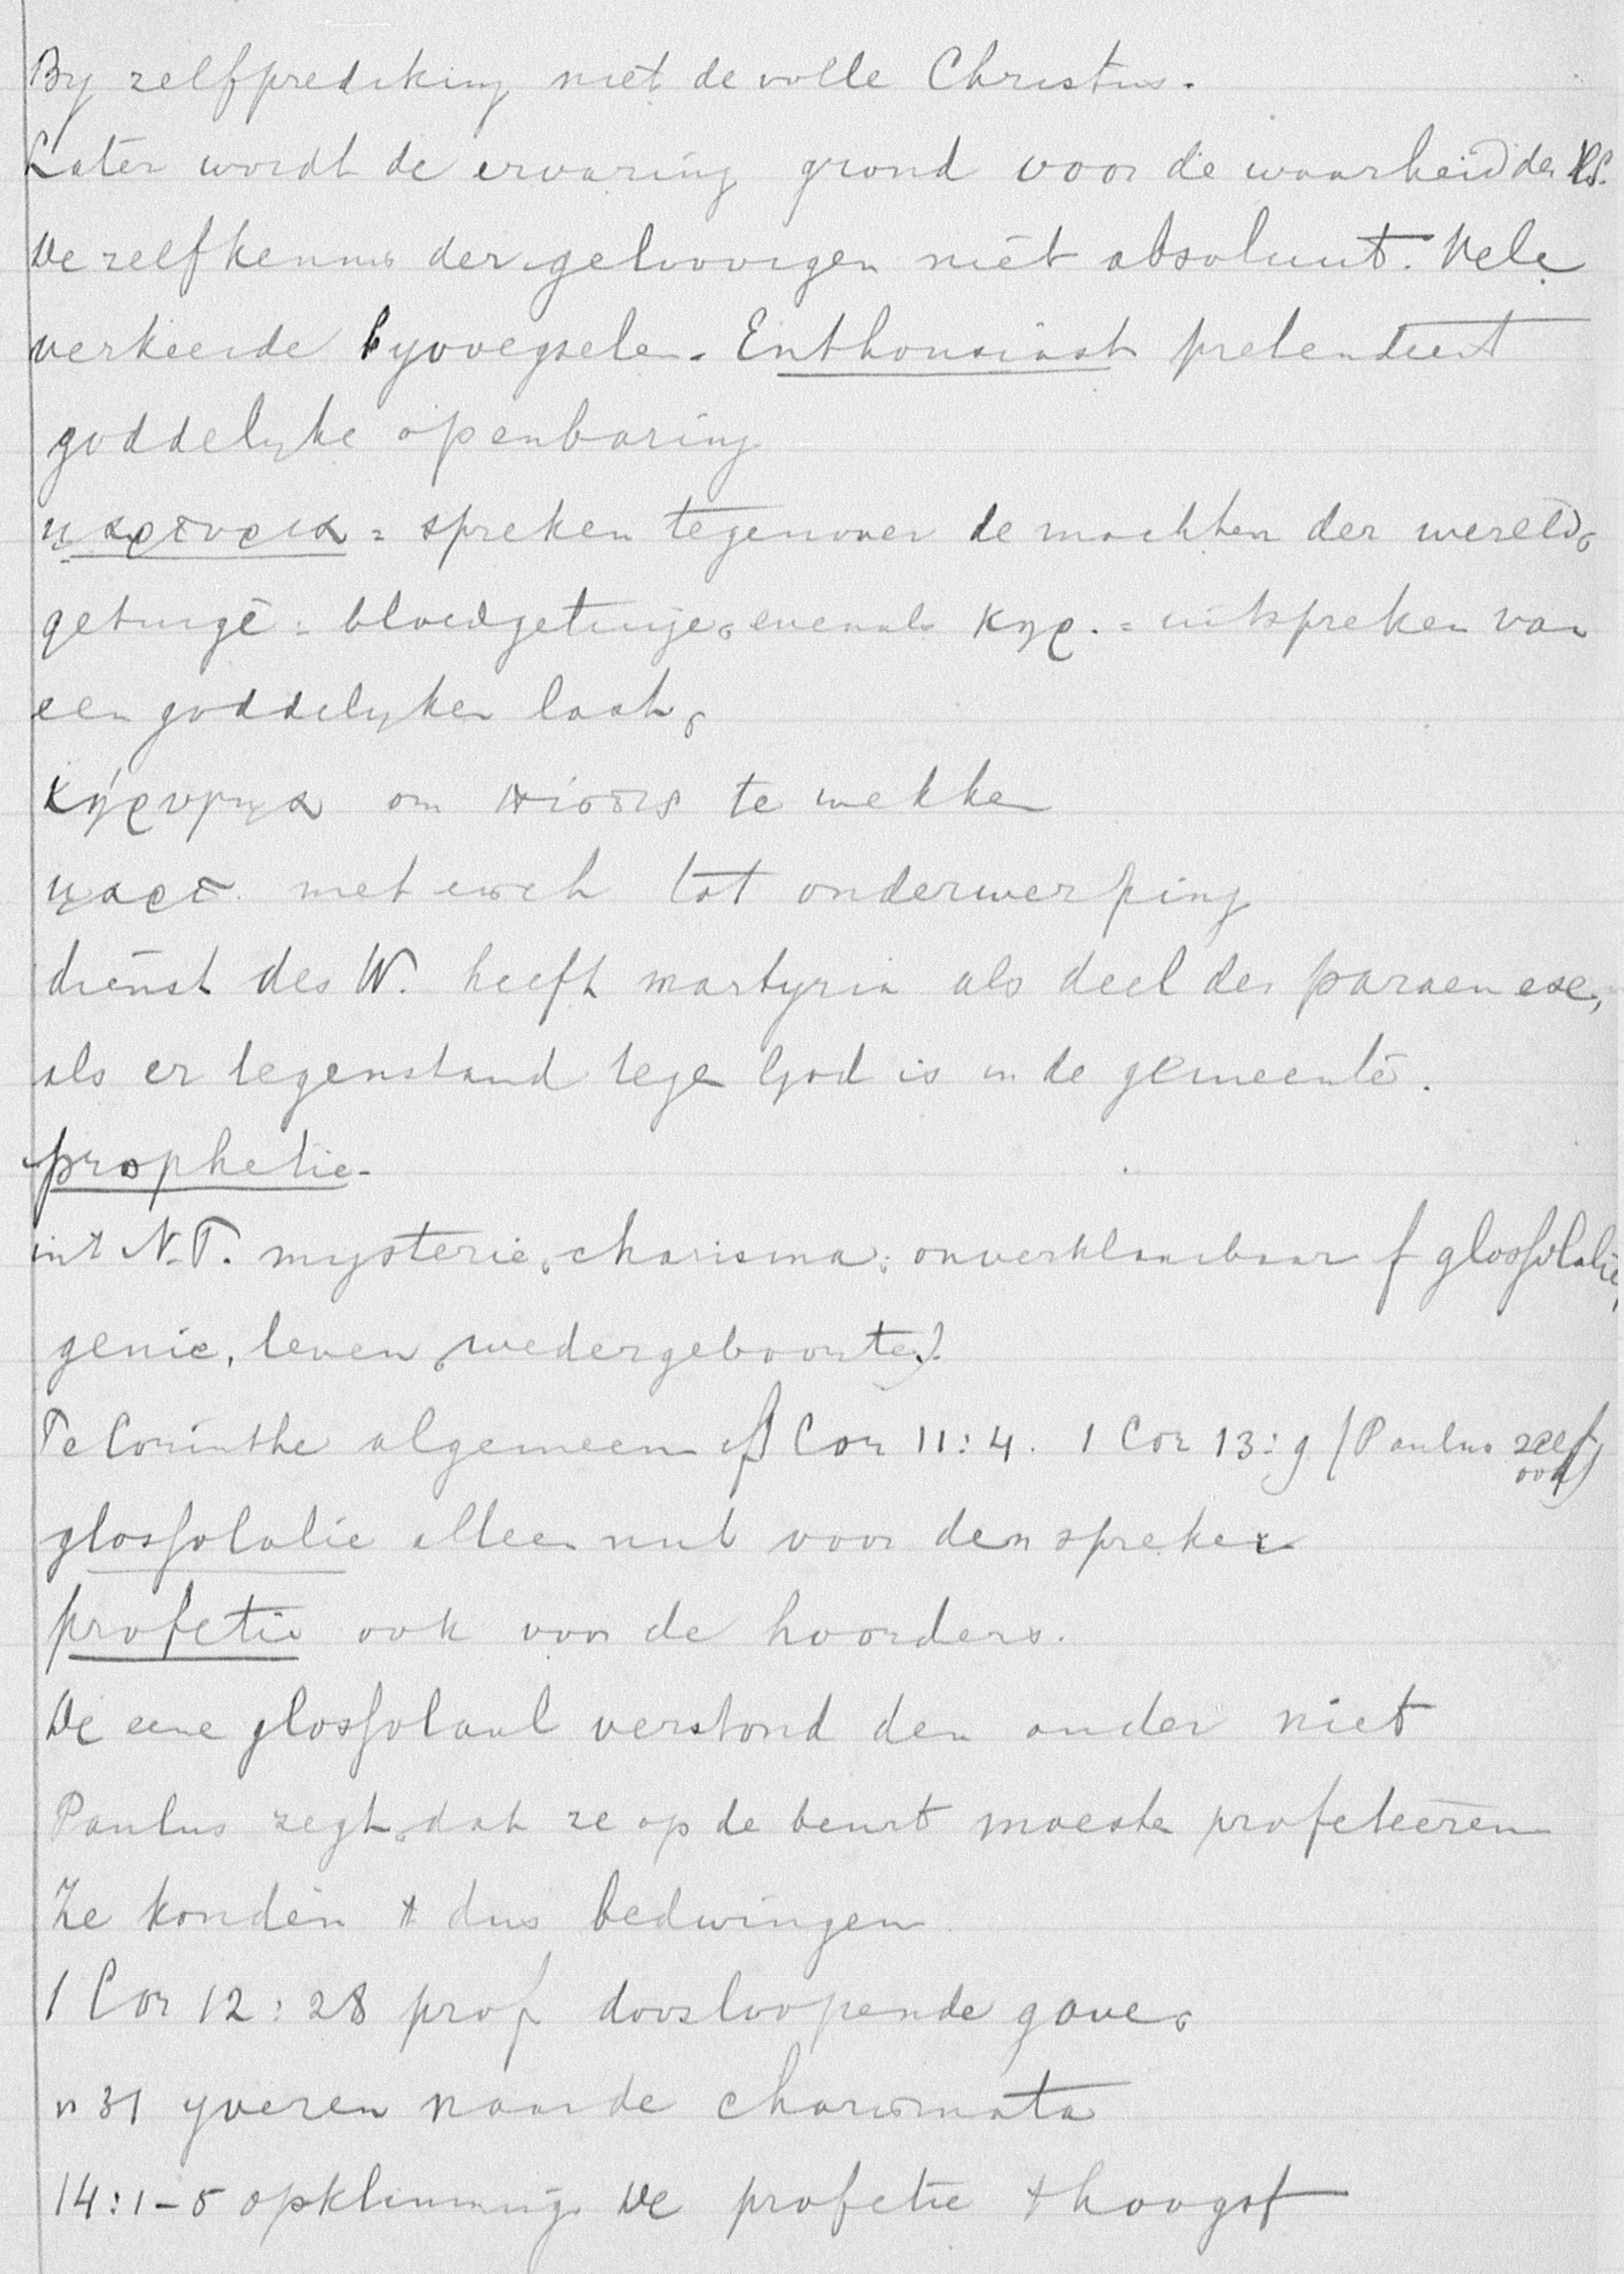 By zelfprediking niet de volle Christus.
Later wordt de ervaring grond voor de waarheid der HS.
De zelfkennis der geloovigen niet absoluut. Vele
verkeerde byvoegselen. Enthousiast pretendeert
goddelyke openbaring
μαρτυρια = spreken tegenover de machten der wereld,
getuige = bloedgetuige, evenals κηρ. = uitspreken van
een goddelyken last,
κήρυγμα om πίστις te wekken
μαρτ. met eisch tot onderwerping
dienst des W. heeft martyria als deel der paraenese,
als er tegenstand tegen God is in de gemeente.
prophetie.
in 't N.T. mysterie, charisma: onverklaarbaar (glossolalie,
genie, leven, wedergeboorte).
Te Corinthe algemeen cf Cor 11:4. 1 Cor 13:9 (Paulus zelf
ook)
glossolalie alleen nut voor den spreker
profetie ook voor de hoorders.
De eene glossolaal verstond den ander niet
Paulus zegt, dat ze op de beurt moesten profeteeren
Ze konden 't dus bedwingen
1 Cor 12:28 prof doorloopende gave,
vs 31 yveren naar de charismata
14:1-5 opklimming De profetie 't hoogst